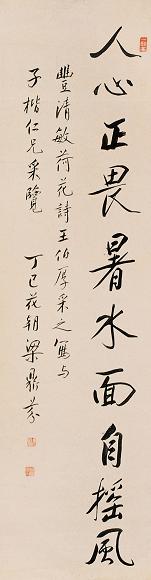 人心正畏暑水面自搖風
豐清敏荷花詩王伯厚采之寫与
子楷仁兄采覽
丁巳花朝梁鼎芬